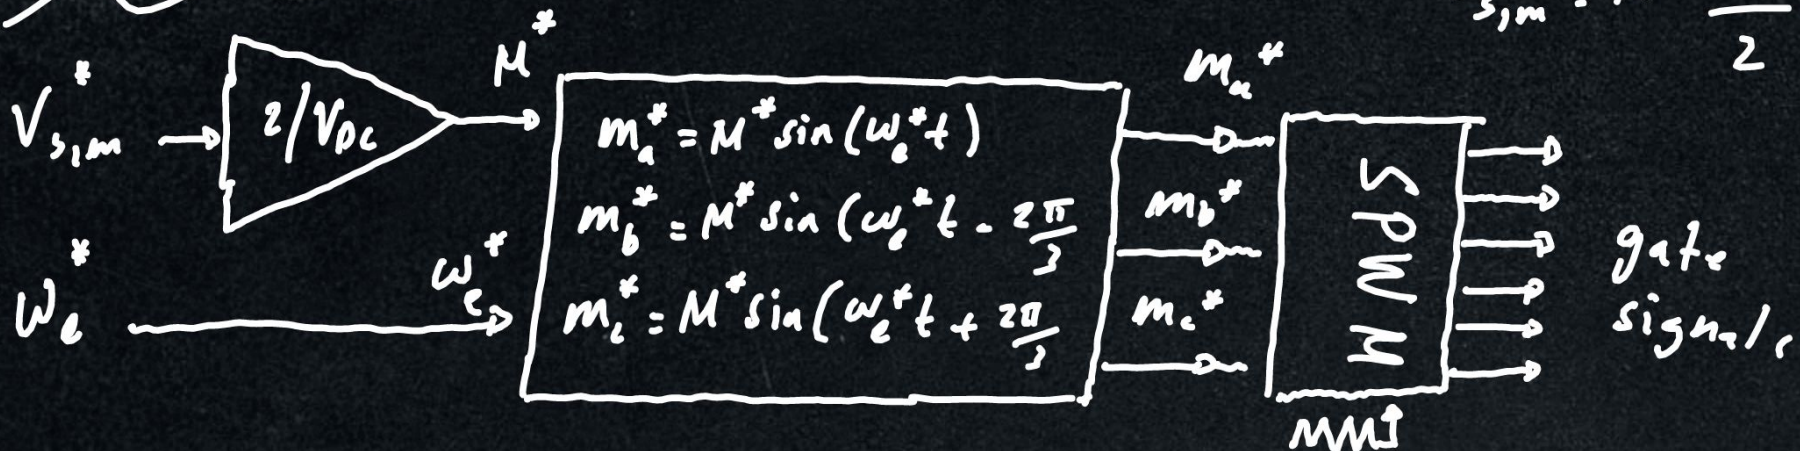 s,m
2
V*s,m
2/VDC
M*
ma* = M* sin(ωe*t)
mb* = M* sin(ωe*t - 2π/3
mc* = M* sin(ωe*t + 2π/3
ωe*
ωe*
ma*
mb*
mc*
SPWM
gate
signals